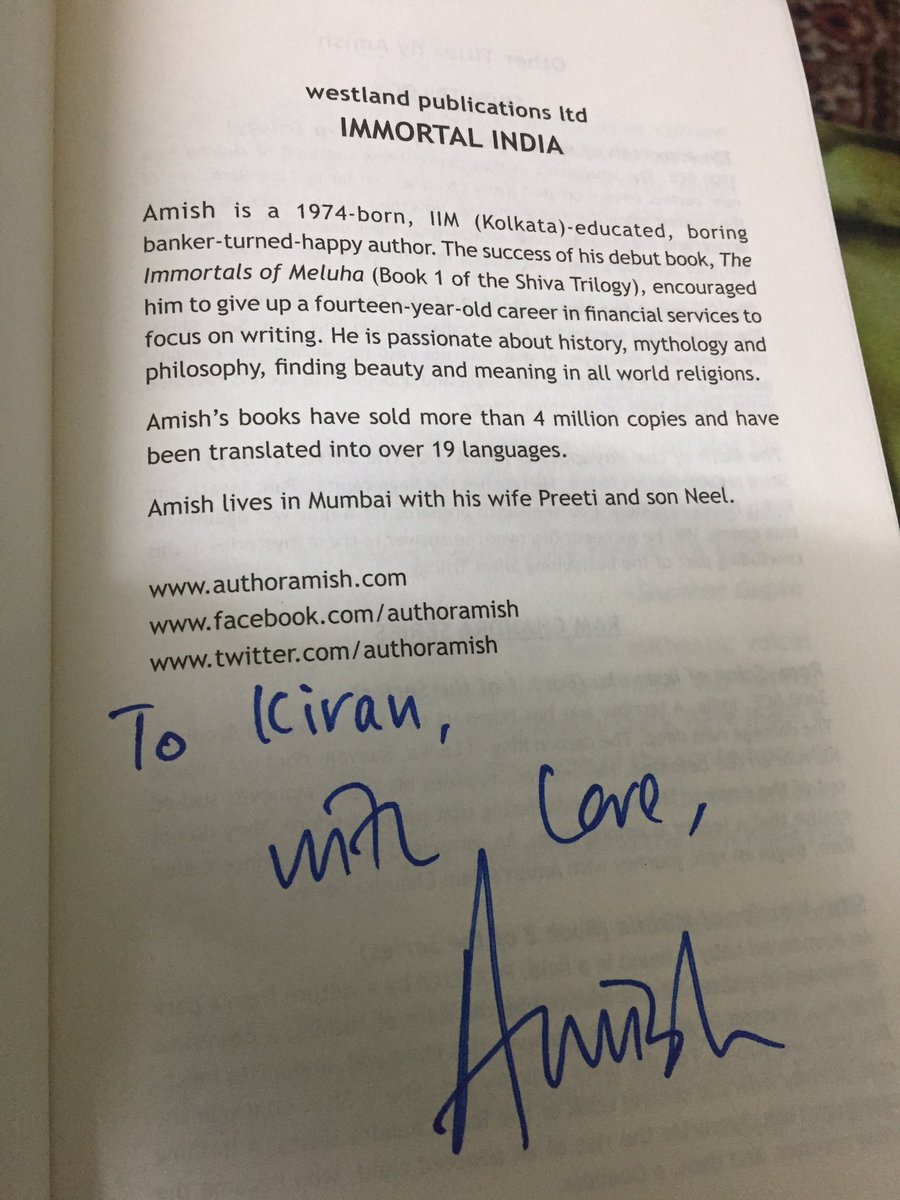 westland publications ltd
IMMORTAL INDIA
Amish is a 1974-born, IIM (Kolkata)-educated, boring
banker-turned-happy author. The success of his debut book, The
Immortals of Meluha (Book 1 of the Shiva Trilogy), encouraged
him to give up a fourteen-year-old career in financial services to
focus on writing. He is passionate about history, mythology and
philosophy, finding beauty and meaning in all world religions.
Amish’s books have sold more than 4 million copies and have
been translated into over 19 languages.
Amish lives in Mumbai with his wife Preeti and son Neel.
www.authoramish.com
www.facebook.com/authoramish
www.twitter.com/authoramish
To Kiran,
with Love,
Amish